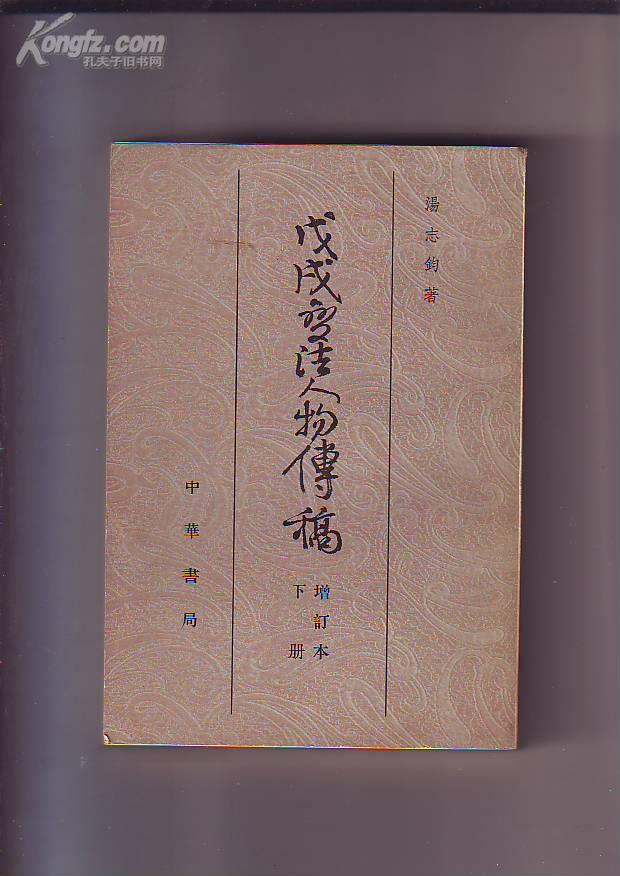 Kongfz.com
孔夫子旧书网
湯志鈞著
戊戌变法人物傳稿
增訂本
下册
中華書局